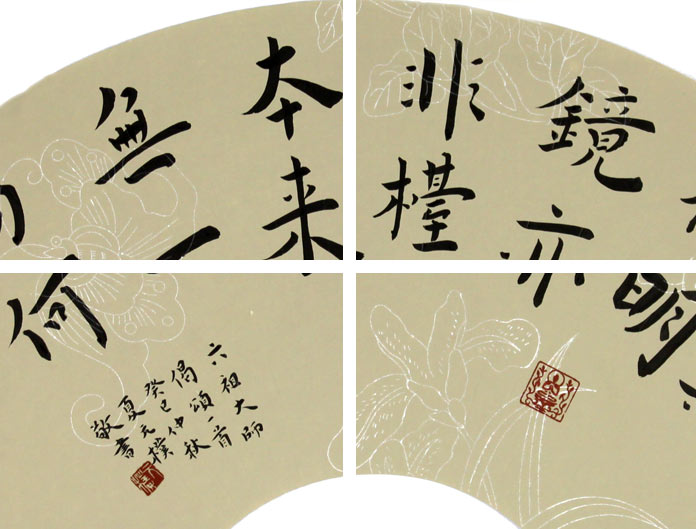 明
鏡亦
非檯
本来
無一
何
六祖大師
偈頌一首
癸巳仲秋
夏元樸
敬書